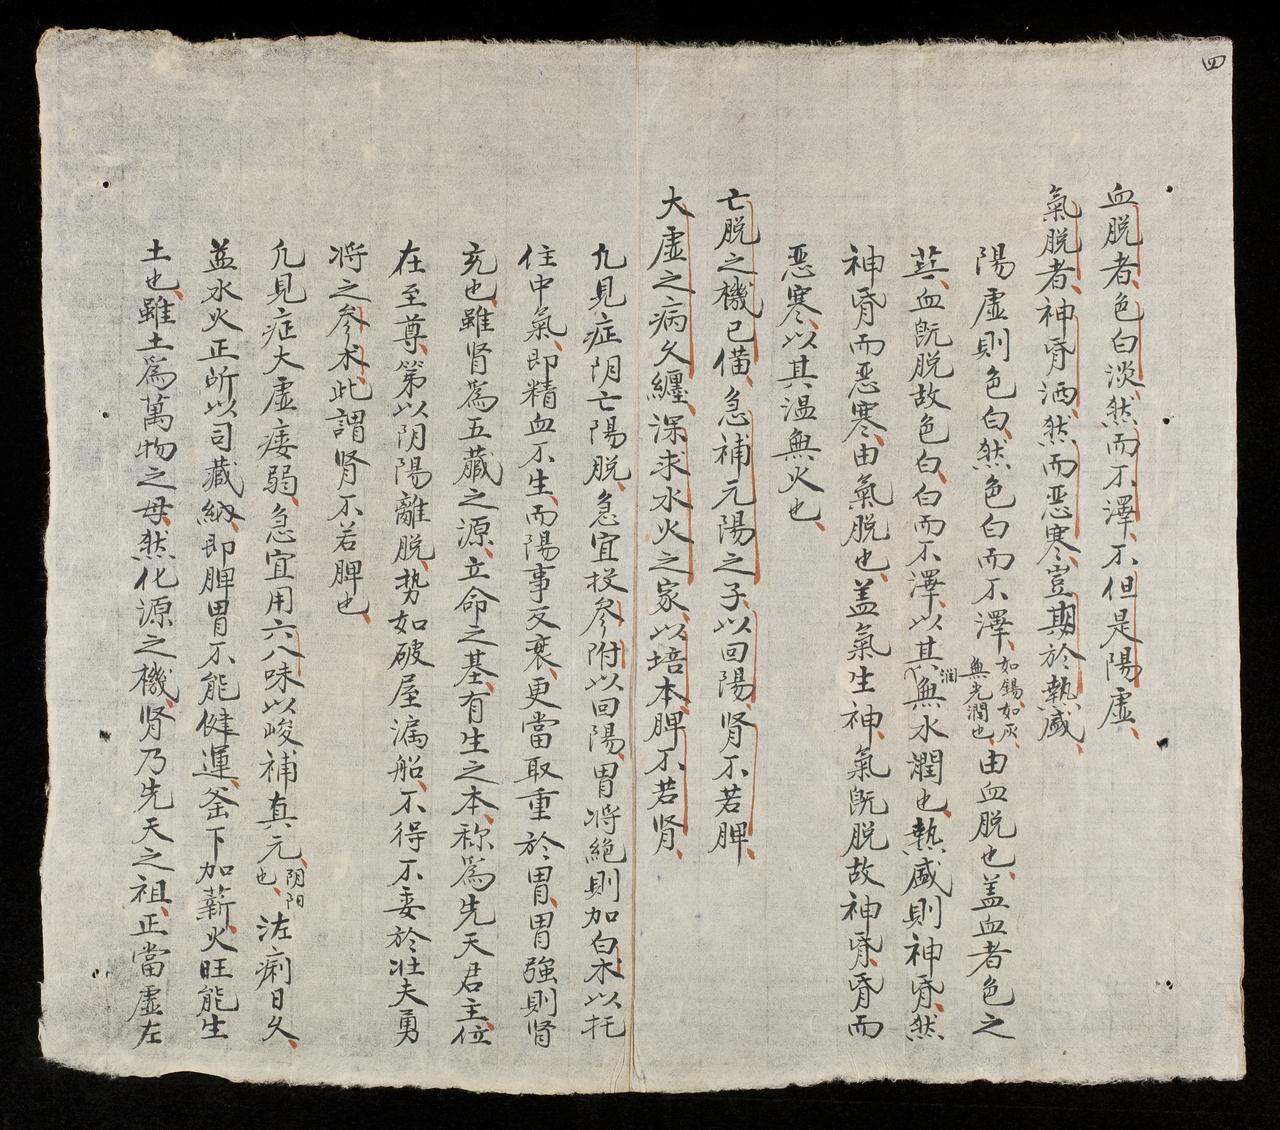 四
血脱者、色白淡然而不澤、不但是陽虛、
氣脱者、神昏洒然而惡寒、豈期於熱盛、
陽虛則色白、然色白而不澤、如錫、如灰、無光潤也、由血脱也、盖血者色之
華、血既脱故色白、白而不澤、以其無水潤也、熱盛則神昏、然
神昏而惡寒、由氣脱也、盖氣生神、氣既脱故神昏、昏而
惡寒、以其溫無火也、
亡脱之機已備、急補元陽之子、以回陽、肾不若脾、
大虛之病久纏、深求水火之家、以培本、脾不若肾、
凢見症阴亡陽脱、急宜投參附以回陽、胃将絶則加白术以托
住中氣、即精血不生、而陽事反衰、更當取重於胃、胃強則肾
充也、雖肾爲五臟之源、立命之基、有生之本、称爲先天君主、位
在至尊、第以阴陽離脱、勢如破屋漏船、不得不委於壮夫勇
将之參术、此謂肾不若脾也、
凢見症大虛痿弱、急宜用六八味以峻補真元、阴阳也、泄痢日久、
益水火正所以司藏納、即脾胃不能健運、釜下加薪、火旺能生
土也、雖土爲萬物之母、然化源之機、肾乃先天之祖、正當虛左